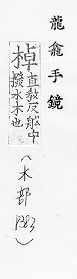 龍龕手鏡
棹直教反船中
撥水木也
(木部
1383)